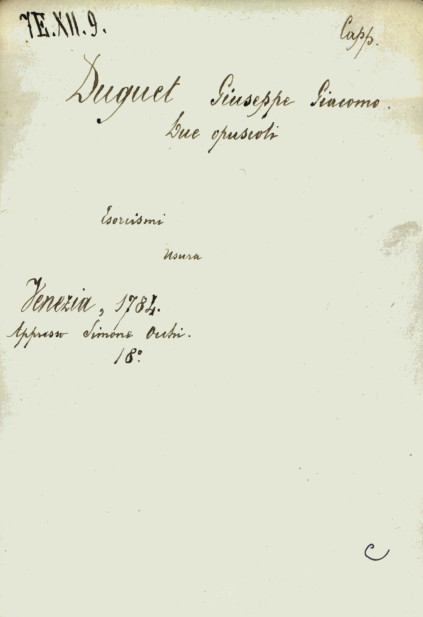 7E.XII.9.
Capp.
Duguet Giuseppe Giacomo.
Due opuscoli
Esorcismi
Usura
Venezia, 1784.
Appresso Simone Occhi.
18°
C